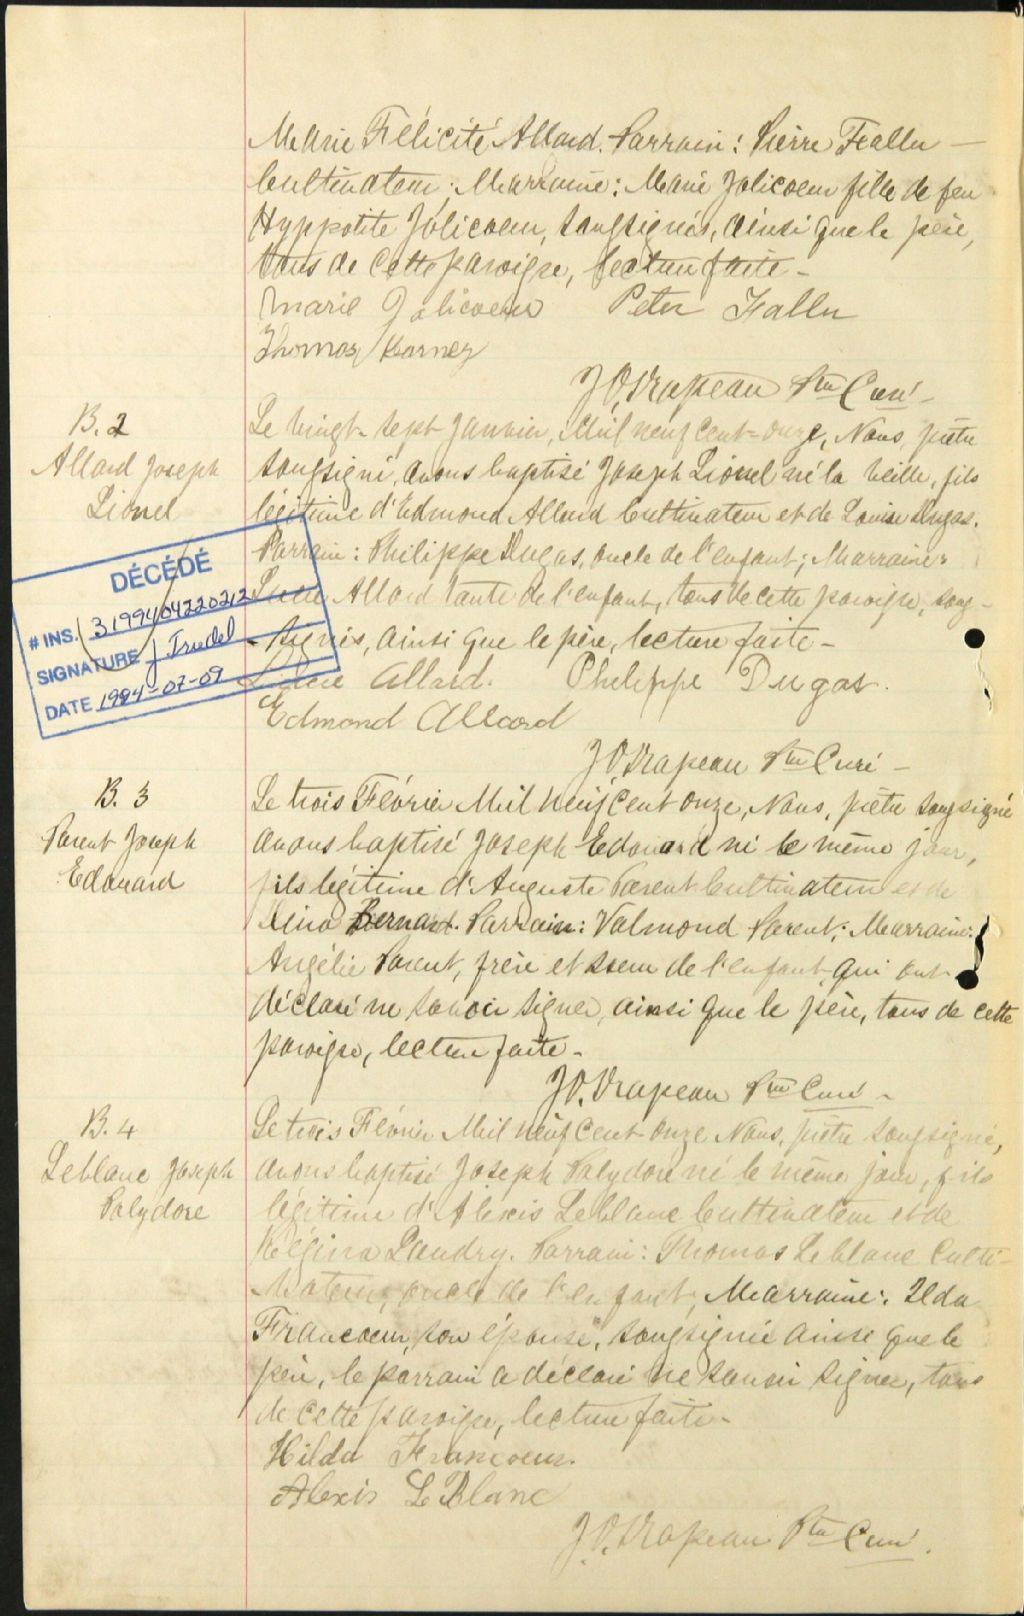 Marie Félicité Allard. Parrain : Pierre Fallu —
Cultivateur ; Marraine : Marie Jolicoeur fille de feu
Hyppolite Jolicoeur, soussignés, ainsi que le père,
tous de cette paroisse, lecture faite -
Marie Jolicoeur Peter Fallu
Thomas
J.O. Drapeau Ptre Curé -
B. 2
Allard Joseph
Lionel
Le vingt-sept Janvier, Mil neuf cent-onze, Nous, prêtre
soussigné, avons baptisé Joseph Lionel né la veille, fils
légitime d'Edmond Allard Cultivateur et de Louise Dugas.
Parrain : Philippe Dugas, oncle de l'enfant ; Marraine :
Allard tante de l'enfant, tous de cette paroisse, sous-
signés, ainsi que le père, lecture faite -
DÉCÉDÉ
# INS. 3199404220212
SIGNATURE J Trudel
DATE 1994-07-09
Allard. Philippe Dugas.
Edmond Allard
J.O. Drapeau Ptre Curé -
B. 3
Parent Joseph
Edouard
Le trois Février Mil neuf cent onze, Nous, prêtre soussigné
avons baptisé Joseph Edouard né le même jour,
fils légitime d'Auguste Parent Cultivateur et de
Bernard. Parrain : Valmond Parent ; Marraine :
Angélie Parent, frère et soeur de l'enfant qui ont
déclaré ne savoir signer, ainsi que le père, tous de cette
paroisse, lecture faite -
J.O. Drapeau Ptre Curé -
B. 4
Leblanc Joseph
Polydore
Le trois Février Mil neuf cent onze Nous, prêtre soussigné,
avons baptisé Joseph Polydore né le même jour, fils
légitime d'Alexis Leblanc Cultivateur et de
Régina Landry. Parrain : Thomas Leblanc Culti-
vateur, oncle de l'enfant ; Marraine : Ilda
Francoeur, son épouse, soussignée ainsi que le
père, le parrain a déclaré ne savoir signer, tous
de cette paroisse, lecture faite -
Hilda Francoeur.
Alexis LeBlanc
J.O. Drapeau Ptre Curé.